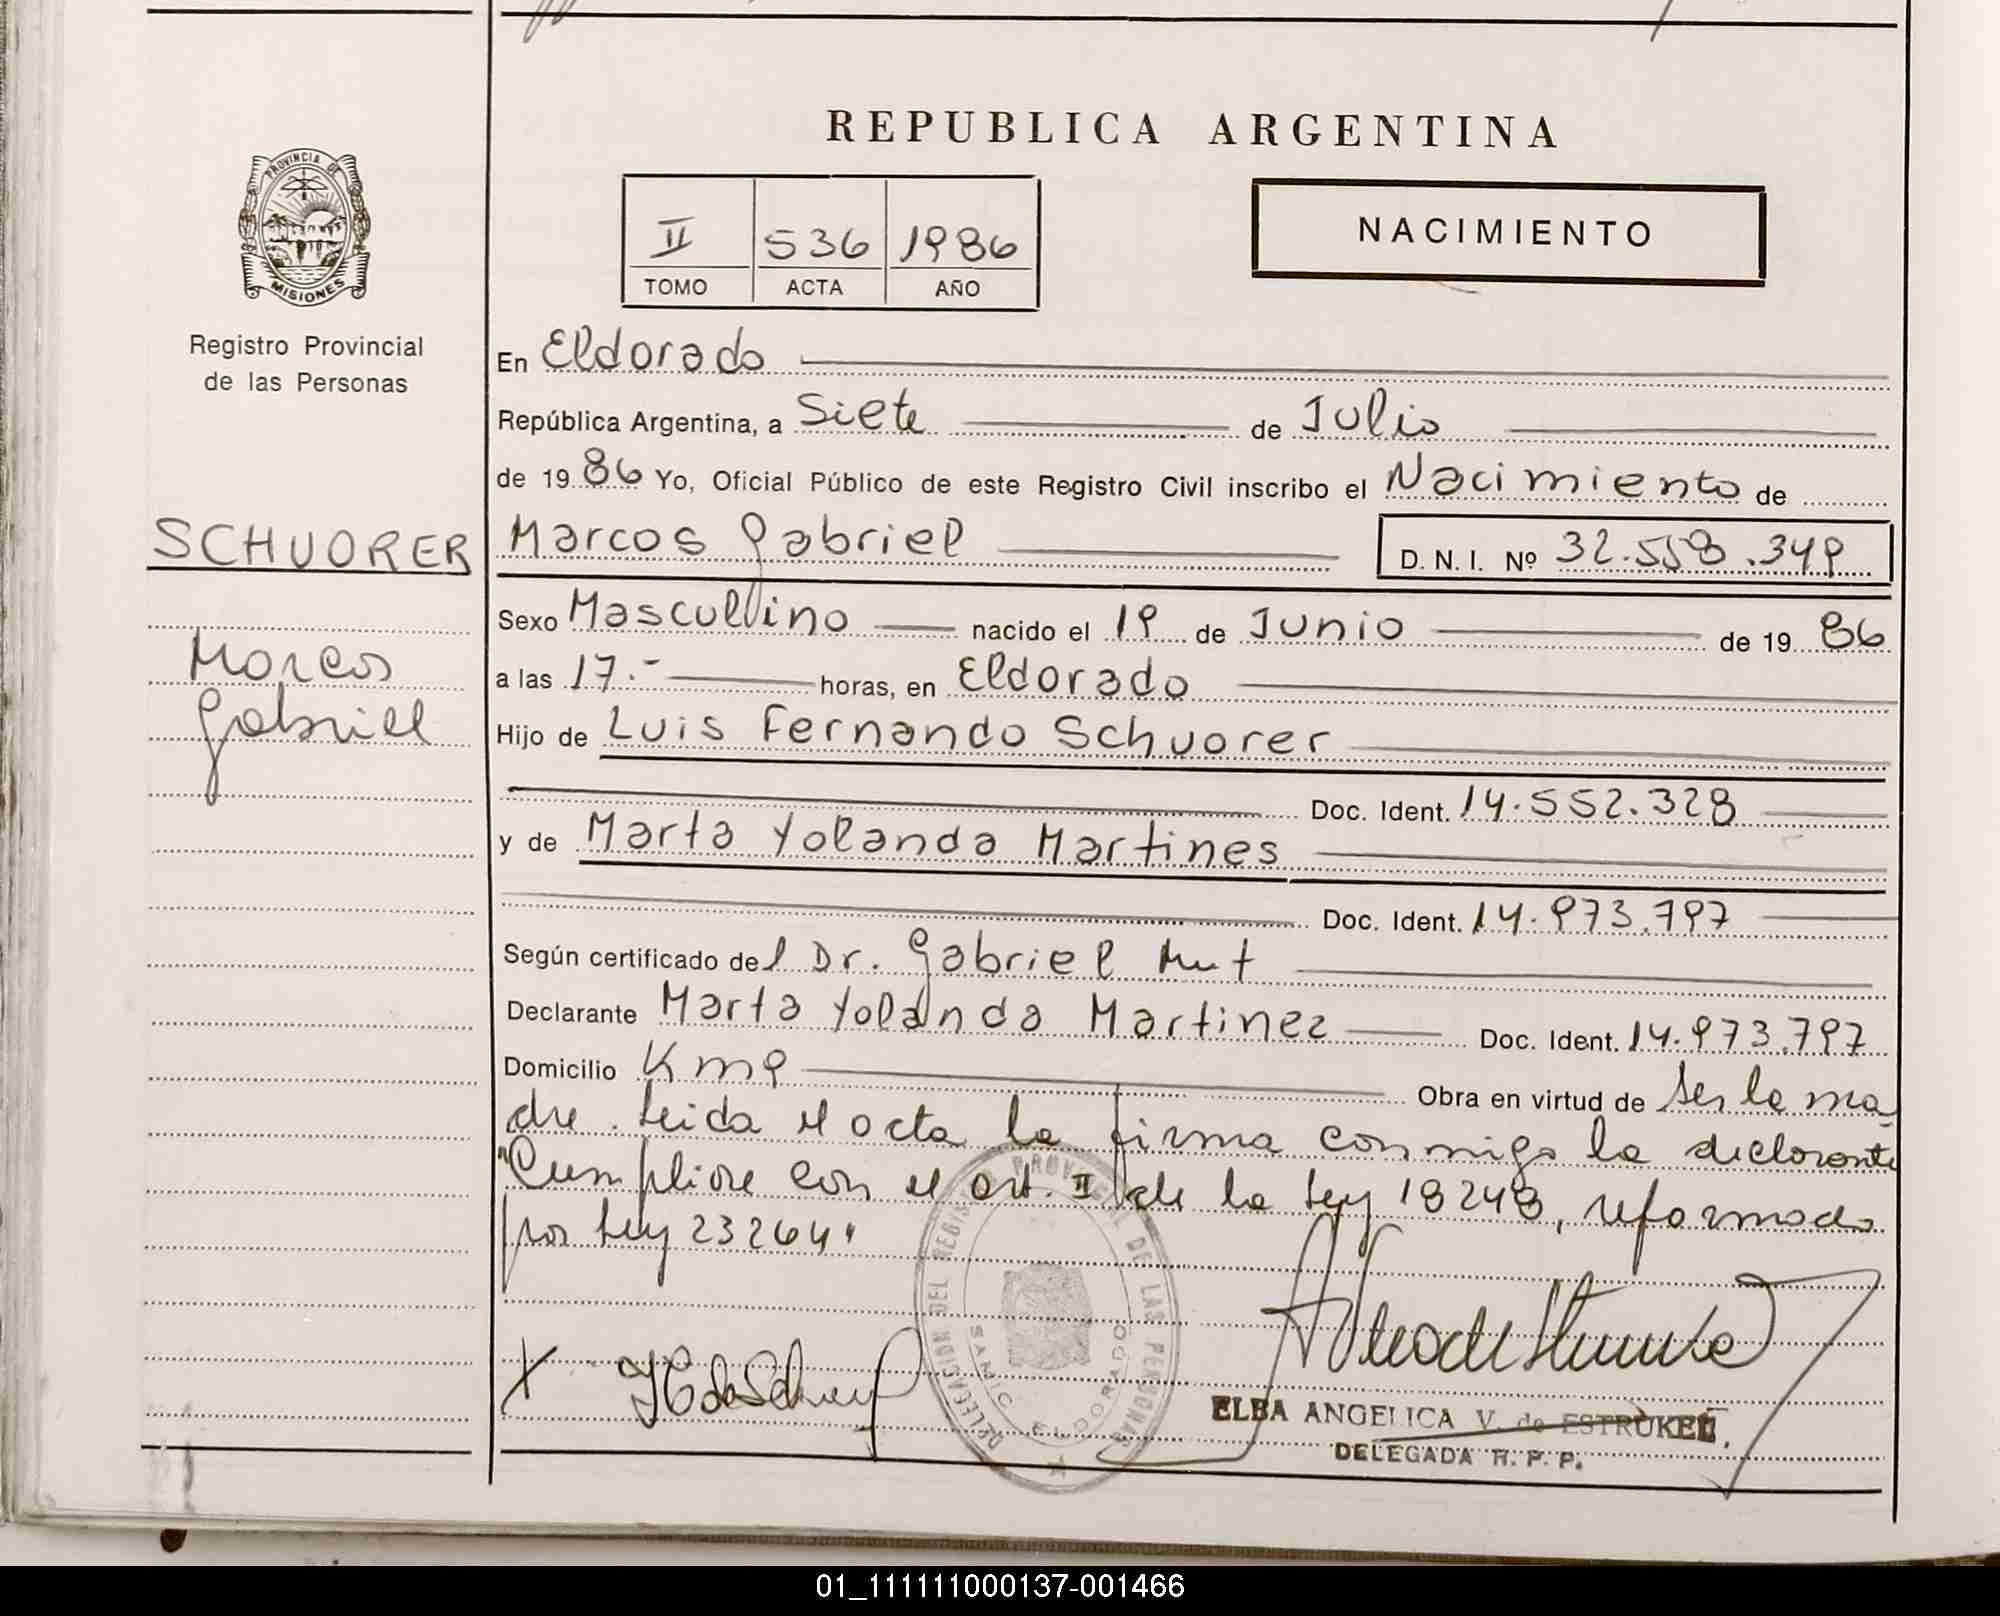 REPUBLICA ARGENTINA
PROVINCIA DE
MISIONES
II 536 1986
TOMO ACTA AÑO
NACIMIENTO
Registro Provincial
de las Personas
En Eldorado
República Argentina, a Siete de Julio
de 1986 Yo, Oficial Público de este Registro Civil inscribo el Nacimiento de
SCHUORER Marcos Gabriel D. N. I. Nº 32.558.349
Sexo Masculino nacido el 19 de Junio de 1986
Marcos
a las 17.- horas, en Eldorado
Gabriel
Hijo de Luis Fernando Schuorer
Doc. Ident. 14.552.328
y de Marta Yolanda Martines
Doc. Ident. 14.973.797
Según certificado del Dr. Gabriel Mut
Declarante Marta Yolanda Martinez Doc. Ident. 14.973.797
Domicilio Km 9 Obra en virtud de ser la ma
dre. Leida el acta la firma conmigo la declarante
"Cumpliose con el art. II de la Ley 18248, reformado
por Ley 23264"
DELEGACION DEL REGISTRO PROVINCIAL DE LAS PERSONAS
SAMIC ELDORADO
X
ELBA ANGELICA V. de
DELEGADA R. P. P.
01_111111000137-001466